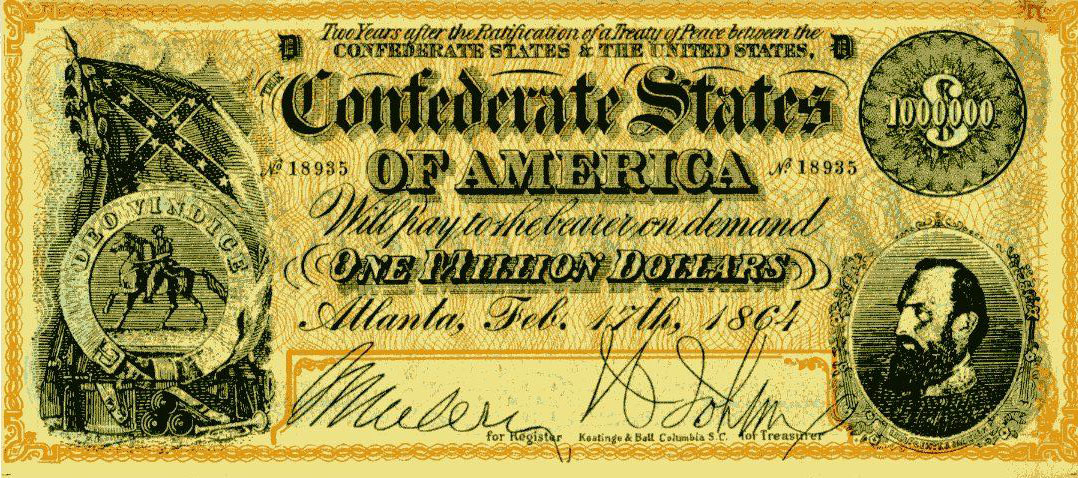 Two Years after the Ratification of a Treaty of Peace between the
CONFEDERATE STATES & THE UNITED STATES,
THE
Confederate States
OF AMERICA
1000000
$
No 18935
No 18935
Will pay to the bearer on demand
ONE MILLION DOLLARS
Atlanta, Feb. 17th, 1864
DEO VINDICE
for Register Keatinge & Ball Columbia S.C. for Treasurer